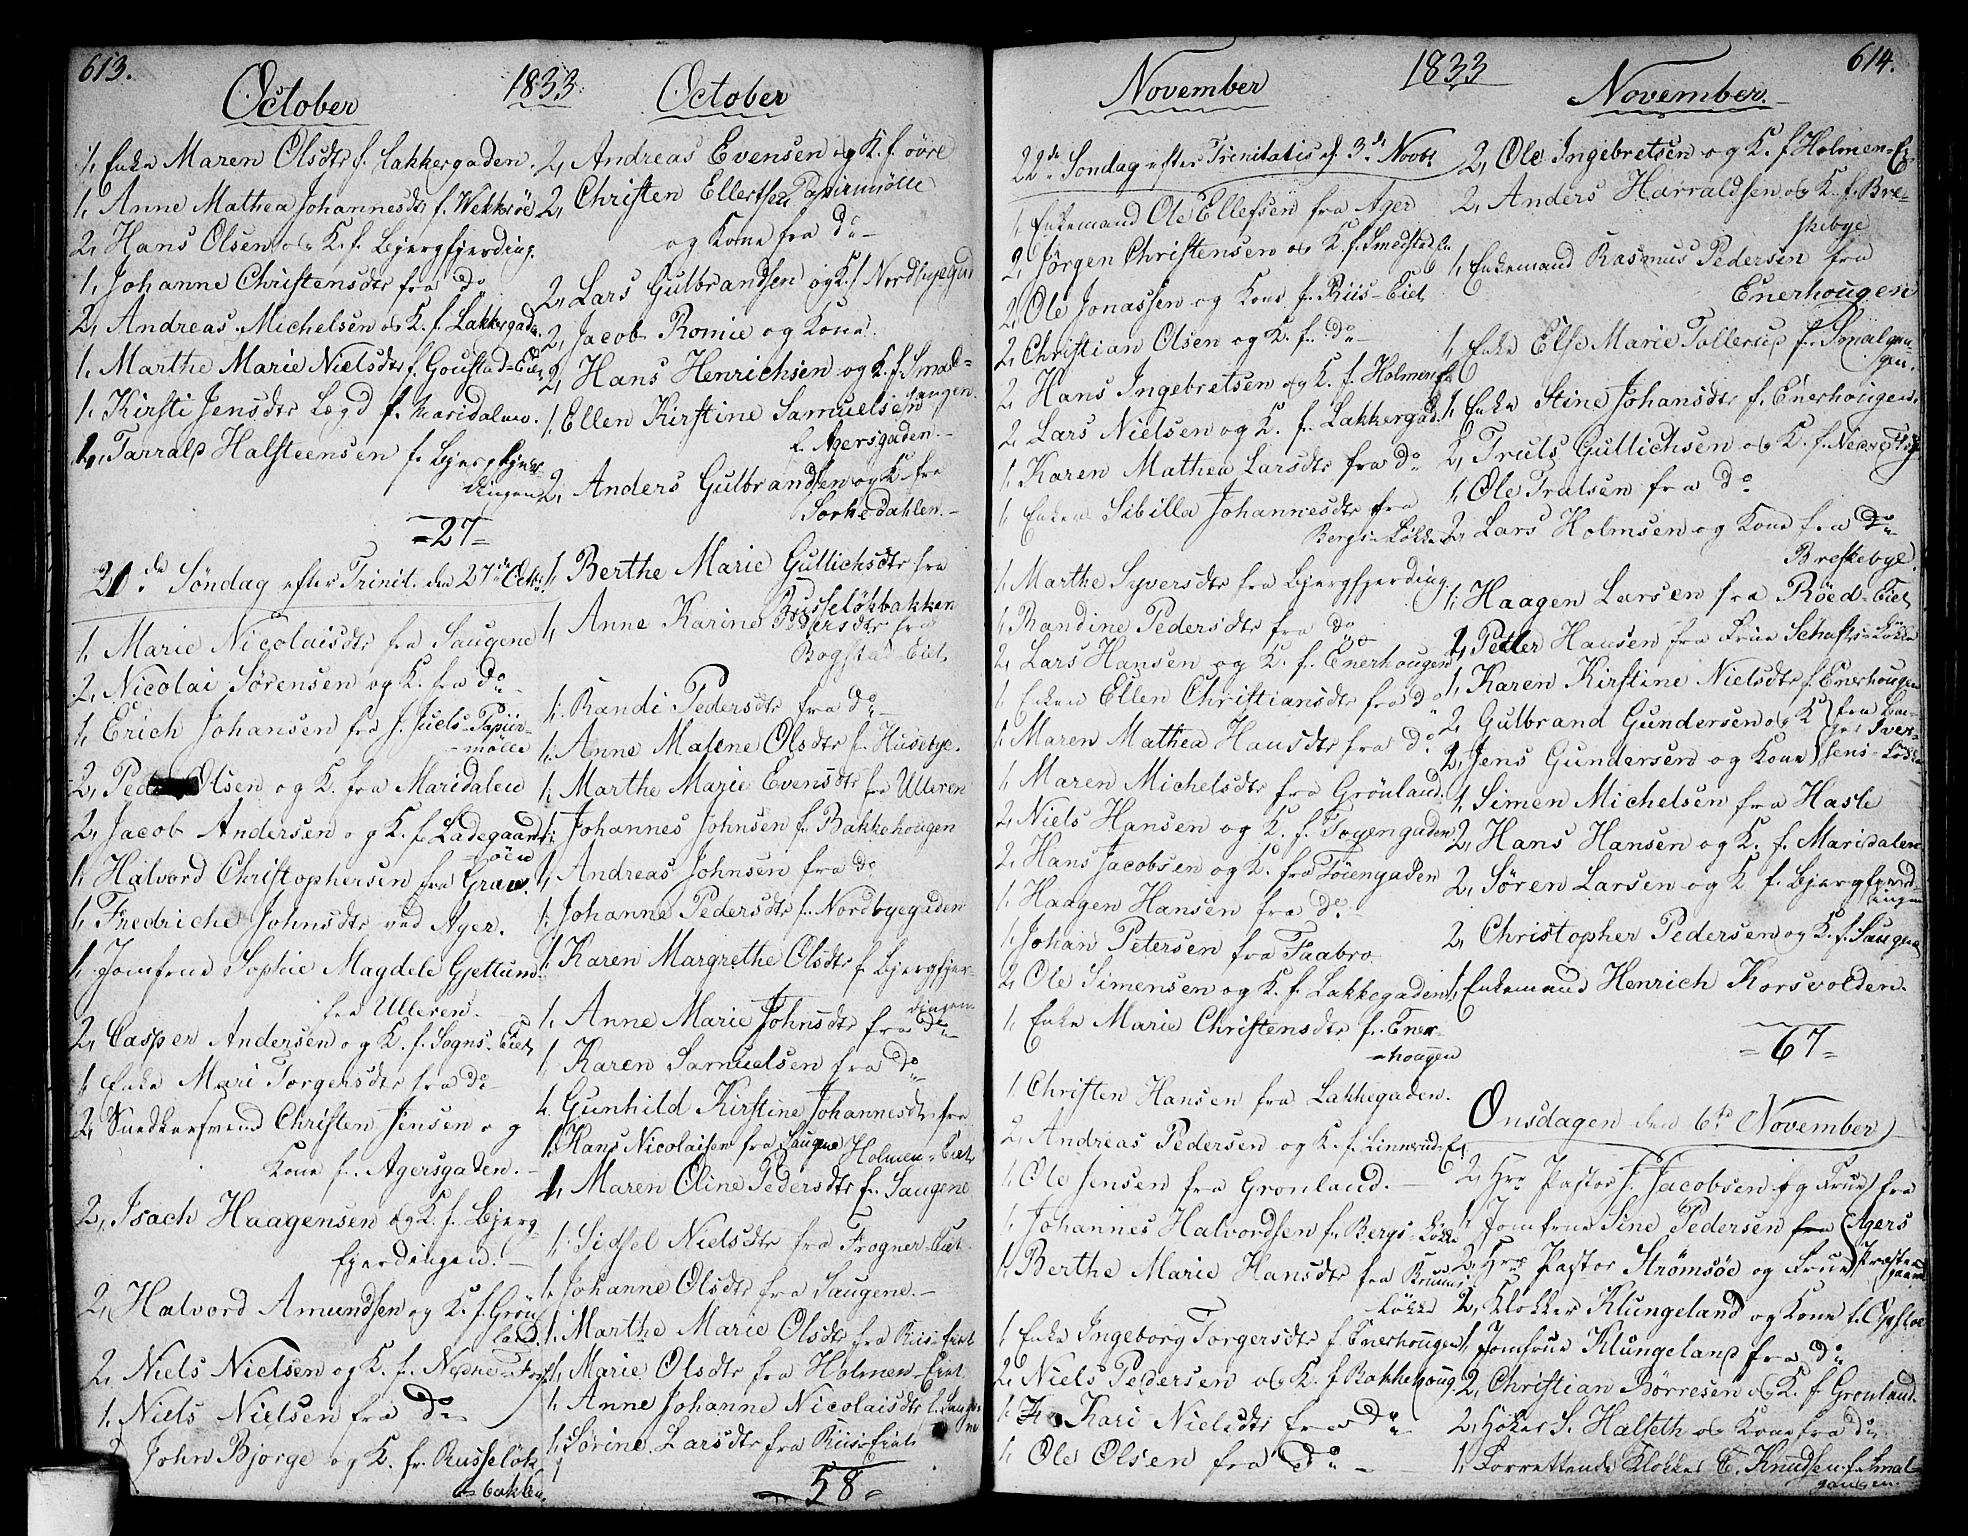 613.
1833.
October
1, Enke Maren Olsdtr f. Lakkergaden.
1, Anne Mathea Johannesdtr f. Wekkerøe
2, Hans Olsen og K. f. Bjergfjerding.
1, Johanne Christensdtr fra do
2, Andreas Michelsen og K. f. Lakkergade.
1, Marthe Marie Nielsdtr f. Goustad-Eiet
1, Kirsti Jensdtr Lægd f. Maridalen.
1, Tarrald Halsteensen f. Bjergfjer-
dingen
-27-
21de Søndag efter Trinit. den 27de Octb.
1, Marie Nicolaisdtr fra Saugene
2, Nicolai Sørensen og K. fra do
1, Erich Johansen fra J. Juels Papiir-
mølle
2, Peder Olsen og K. fra Maridalen
2, Jacob Andersen og K. f. Ladegaards-
øen
1, Halvord Christophersen fra Græv.
1, Fredriche Johnsdtr ved Ager.
1, Jomfrue Sophie Magdele Gjettum
fra Ulleren.
2, Casper Andersen og K. f. Sogns-Eiet
1, Enke Mari Torgersdtr fra do
2, Snedkersvend Christen Jensen og
Kone f. Agersgaden.
2, Isach Haagensen og K. f. Bjerg-
fjerdingen.
2, Halvord Amundsen og K. f. Grøn-
land.
2, Niels Nielsen og K. f. Nedre-Foss
1, Niels Nielsen fra do
2, John Bjorge og K. fr. Russeløk-
bakken.
October
2, Andreas Evensen og K. f. øvre
2, Christen Ellertsen Papirmølle
og Kone fra do
2, Lars Gulbrandsen og K. f. Nordbyegad
2, Jacob Romie og Kone.
2, Hans Henrichsen og K. f. Smal-
gangen.
1, Ellen Kirstine Samuelsen
f. Agersgaden.
2, Anders Gulbrandsen og K. fra
Sørkedahlen.
1, Berthe Marie Gullichsdtr fra
Russeløkbakken
1, Anne Karine Pedersdtr fra
Bogstad-Eiet
1, Randi Pedersdtr fra do
1, Anne Malene Olsdtr f. Husebye.
1, Marthe Marie Evensdtr fra Ulleren
1, Johannes Johnsen f. Bakkehougen
1, Andreas Johnsen fra do
1, Johanne Pedersdtr f. Nordbyegaden
1, Karen Margrethe Olsdtr f. Bjergfjer-
dingen
1, Anne Marie Johnsdtr fra do
1, Karen Samuelsen fra do
1, Gunhild Kirstine Johannesdtr fra
Holmen-Eiet
1, Hans Nicolaisen fra Saugene
1, Maren Oline Pedersdtr f. Saugene
1, Sidsel Nielsdtr fra Frogner-Eiet
1, Johanne Olsdtr fra Saugene.
1, Marthe Marie Olsdtr fra Riis-Eiet
1, Marie Olsdtr fra Holmen-Eiet
1, Anne Johanne Nicolaisdtr f. Sauge-
ne
1, Sørine Larsdtr fra Riis-Eiet
-58-
614.
1833
November
22de Søndag efter Trinitatis d. 3de Novbr
1, Enkemand Ole Ellefsen fra Ager
2, Jørgen Christensen og K. f. Smedstad E.
2, Ole Jonassen og Kone f. Riis-Eiet
2, Christian Olsen og K. f. do
2, Hans Ingebretsen og K. f. Holmen E.
2, Lars Nielsen og K. f. Lakkergad.
1, Karen Mathea Larsdtr fra do
1, Enken Sibilla Johannesdtr fra
Bergs-Løkke
1, Marthe Syversdtr fra Bjergfjerding
1, Randine Pedersdtr fra do
2, Lars Hansen og K. f. Enerhougen
1, Enken Ellen Christiansdtr fra do
1, Maren Mathea Hansdtr fra do
1, Maren Michelsdtr fra Grönland.
2, Niels Hansen og K. f. Toyengaden
2, Hans Jacobsen og K. fra Töiengaden
1, Haagen Hansen fra do
1, Johan Petersen fra Faabro
2, Ole Simensen og K. f. Lakkegaden
1, Enke Marie Christensdtr f. Ener-
hougen
1, Christen Hansen fra Lakkegaden.
2, Andreas Pedersen og K. f. Linnerud-E.
1, Ole Jensen fra Gronland.
1, Johannes Halvordsen f. Bergs-Løkke
1, Berthe Marie Hansdtr fra Bruuns
Løkke
1, Enke Ingeborg Torgersdtr f. Enerhougen
2, Niels Pedersen og K. f. Bakkehoug
1, Kari Nielsdtr fra do
1, Ole Olsen fra do
November.
2, Ole Ingebretsen og K. f. Holmen-E.
2, Anders Harraldsen og K. f. Bre-
skebye
1, Enkemand Rasmus Pedersen fra
Enerhougen
1, Enke Else Marie Tollerup f. Smalgan-
gen.
1, Enke Stine Johansdtr f. Enerhougen
2, Truls Gullichsen og K. f. Nedre Foss
1, Ole Trulsen fra do
2, Lars Holmsen og Kone fra do
Breskebye.
1, Haagen Larsen fra Röed-Eiet
1, Petter Hansen fra Frue Schafts-Løkke
1, Karen Kirstine Nielsdtr f. Enerhougen
2, Gulbrand Gundersen og K. fra
Iver-
2, Jens Gundersen og Kone sens-Løkke
1, Simen Michelsen fra Hasle
2, Hans Hansen og K. f. Maridalen
2, Søren Larsen og K. f. Bjergfjerd-
ingen
2, Christopher Pedersen og K. f. Saugene
1, Enkemand Henrich Korsvolden.
-67-
Onsdagen den 6te November
2, Hrr Pastor J. Jacobsen og Frue fra
1, Jomfrue Sine Pedersen fra Agers
2, Hrr Pastor Strømsøe og Frue Præste-
gaard
2, Klokker Klungeland og Kone f. Opsloe
1, Jomfrue Klungeland fra do
2, Christian Börresen og K. f. Gronland.
2, Høker S. Halseth og Kone fra do
1, Forrettende Klokker E. Knudsen f. Smal-
gangen.